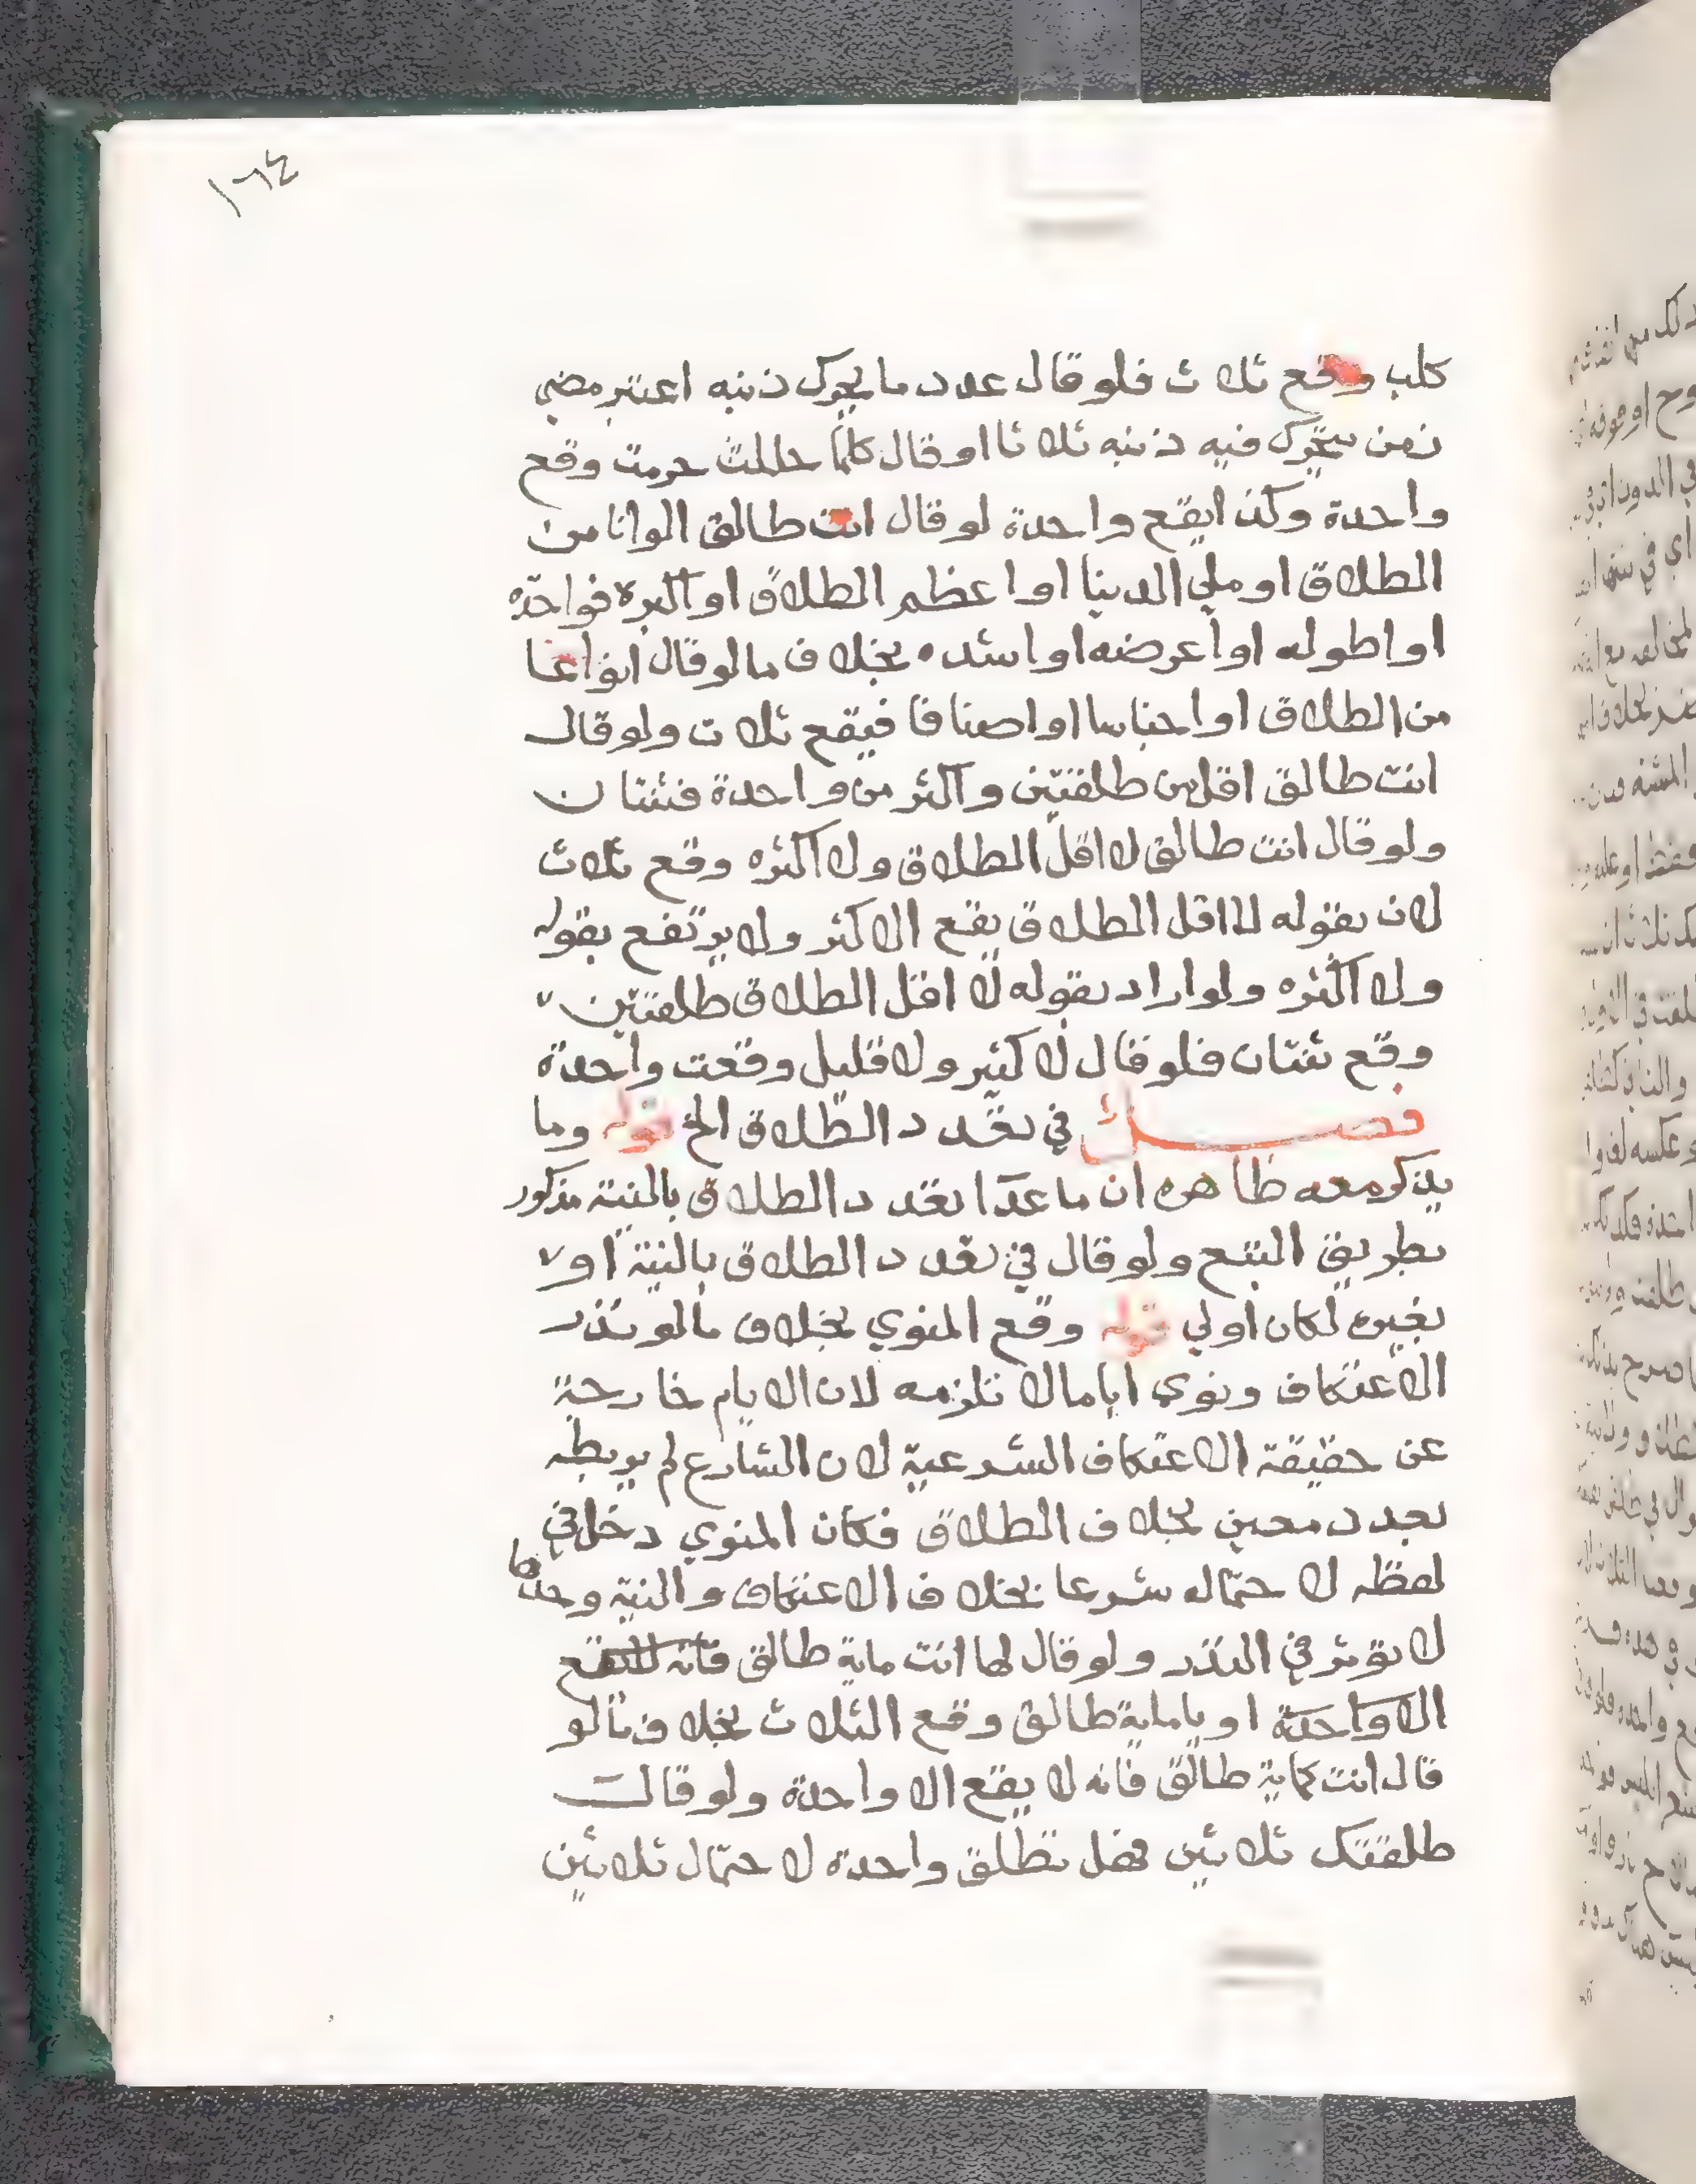 ١٦٤
كلب وقع ثلاث فلو قال عدد ما يحرك ذنبه اعتبر مضي
زمن يتحرك فيه ذنبه ثلاثا او قال كلما حللت حرمت وقع
واحدة وكذا يقع واحدة لو قال انت طالق الوانا من
الطلاق او ملي الدنيا او اعظم الطلاق او اكبره فواحدة
او اطوله او اعرضه او اشده بخلاف ما لو قال انواعا
من الطلاق او اجناسا او اصنافا فيقع ثلاث ولو قال
انت طالق اقل من طلقتين واكثر من واحدة فثنتان
ولو قال انت طالق لا اقل الطلاق ولا اكثره وقع ثلاث
لان بقوله لا اقل الطلاق يقع الاكثر ولا يرتفع بقوله
ولا اكثره ولو اراد بقوله لا اقل الطلاق طلقتين
وقع ثنتان فلو قال لا كثير ولا قليل وقعت واحدة
فصل في تعدد الطلاق الخ قوله وما
يذكر معه ظاهره ان ما عدا تعدد الطلاق بالنية مذكور
بطريق التبع ولو قال في تعدد الطلاق بالنية او
بغيره لكان اولي قوله وقع المنوي بخلاف ما لو نذر
الاعتكاف ونوي اياما لا تلزمه لان الايام خارجة
عن حقيقة الاعتكاف الشرعية لان الشارع لم يربطه
بعدد معين بخلاف الطلاق فكان المنوي دخل في
لفظه لاحتماله شرعا بخلاف الاعتكاف والنية وحدها
لا تؤثر في النذر ولو قال لها انت ماية طالق فانه لا يقع
الا واحدة او يا ماية طالق وقع الثلاث بخلاف ما لو
قال انت كماية طالق فانه لا يقع الا واحدة ولو قالت
طلقتك ثلاثين فهل تطلق واحدة لاحتمال ثلاثين